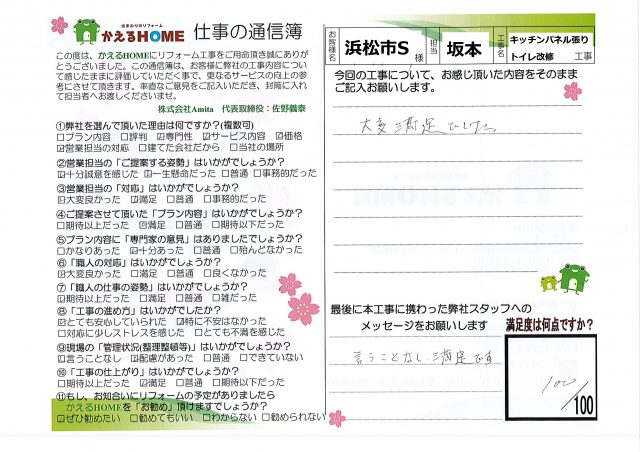 水まわりのリフォーム
かえるHOME 仕事の通信簿
この度は、かえるHOMEにリフォーム工事をご用命頂き誠にありが
とうございました。この通信簿は、お客様に弊社の工事内容につい
て感じたままに評価していただく事で、更なるサービスの向上の参
考にさせて頂きます。率直なご意見をご記入いただき、封筒に入れ
て担当者へお渡しくださいませ。
株式会社Amita 代表取締役:佐野義泰
①弊社を選んで頂いた理由は何ですか?(複数可)
□プラン内容 □評判 ☑専門性 ☑サービス内容 ☑価格
☑営業担当の対応 □建てた会社だから □当社の場所
②営業担当の「ご提案する姿勢」はいかがでしょうか?
☑十分誠意を感じた □一生懸命だった □普通 □事務的だった
③営業担当の「対応」はいかがでしょうか?
☑大変良かった ☑満足 □普通 □事務的だった
④ご提案させて頂いた「プラン内容」はいかがでしょうか?
□期待以上だった ☑満足 □普通 □期待以下だった
⑤プラン内容に「専門家の意見」はありましたでしょうか?
□かなりあった ☑十分あった □普通 □殆んどなかった
⑥「職人の対応」はいかがでしょうか?
☑大変良かった □満足 □普通 □良くなかった
⑦「職人の仕事の姿勢」はいかがでしょうか?
□期待以上だった ☑満足 □普通 □雑だった
⑧「工事の進め方」はいかがでしたか?
☑とても安心していられた □特に不安はなかった
□対応に少しストレスを感じた □とても不満を感じた
⑨現場の「管理状況(整理整頓等)」はいかがでしょうか?
☑言うことなし ☑配慮があった □普通 □できていない
⑩「工事の仕上がり」はいかがでしょうか?
□期待以上だった ☑満足 □普通 □期待以下だった
⑪もし、お知合いにリフォームの予定がありましたら
かえるHOMEを「お勧め」頂けますでしょうか?
☑ぜひ勧めたい □勧めてもいい □わからない □勧められない
お客様名 浜松市S 様 担当 坂本 工事名 キッチンパネル張り
トイレ改修 工事
今回の工事について、お感じ頂いた内容をそのまま
ご記入お願いします。
大変満足でした
最後に本工事に携わった弊社スタッフへの
メッセージをお願いします
言うことなし 満足です
満足度は何点ですか?
100/100